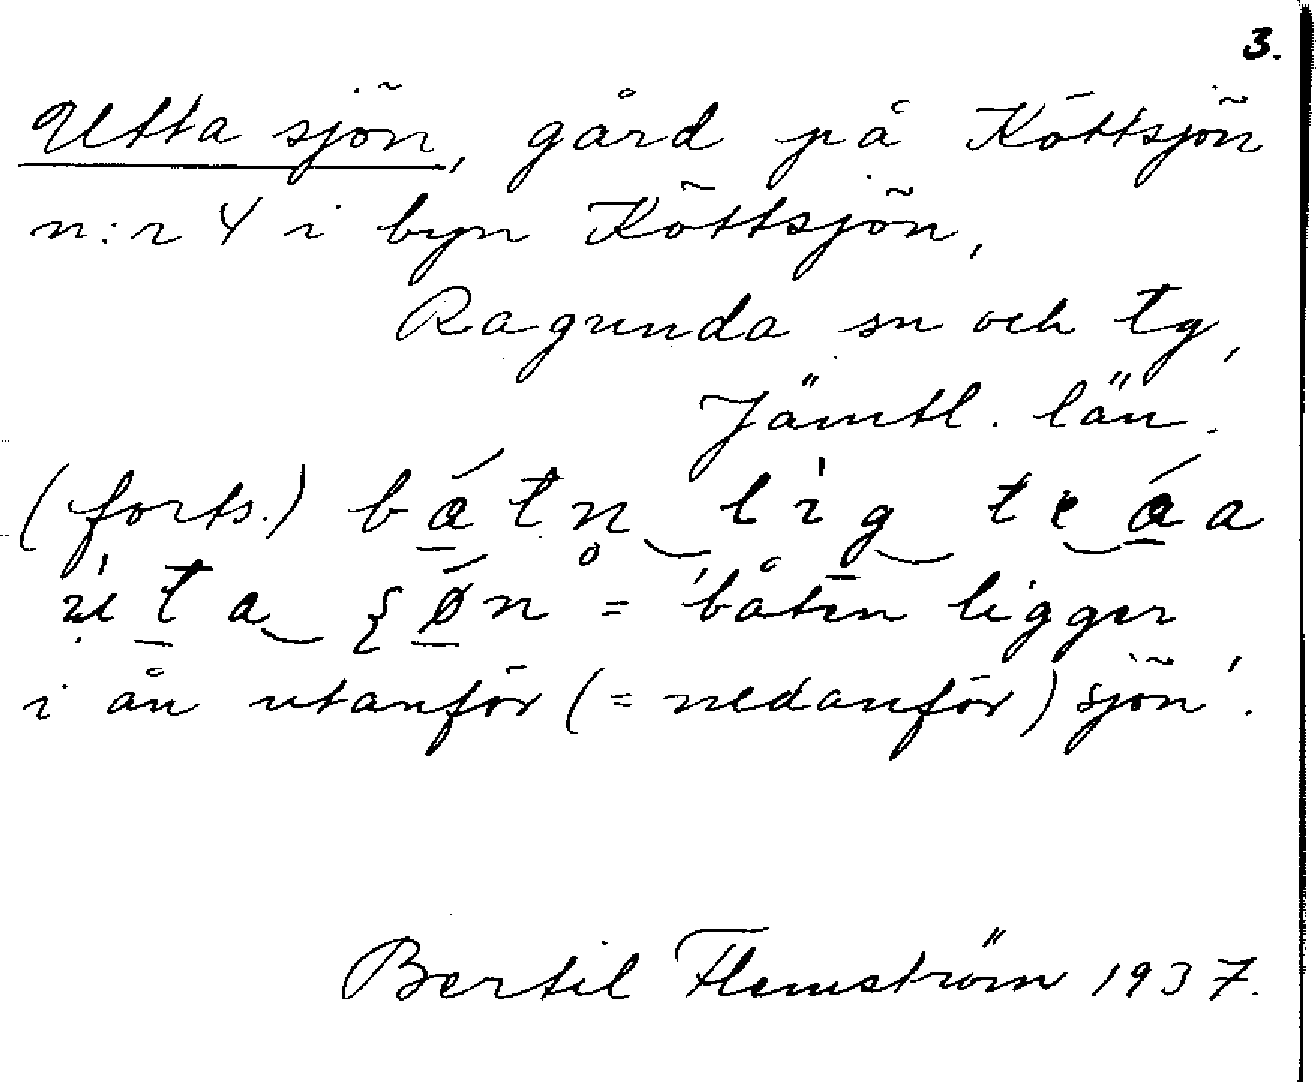 3.
Utta sjön, gård på Köttsjön
n:r 4 i byn Köttsjön,
Ragunda sn och tg,
Jämtl. län.
(forts.)
= 'båten ligger
i ån utanför (= nedanför) sjön'.
Bertil Flemström 1937.